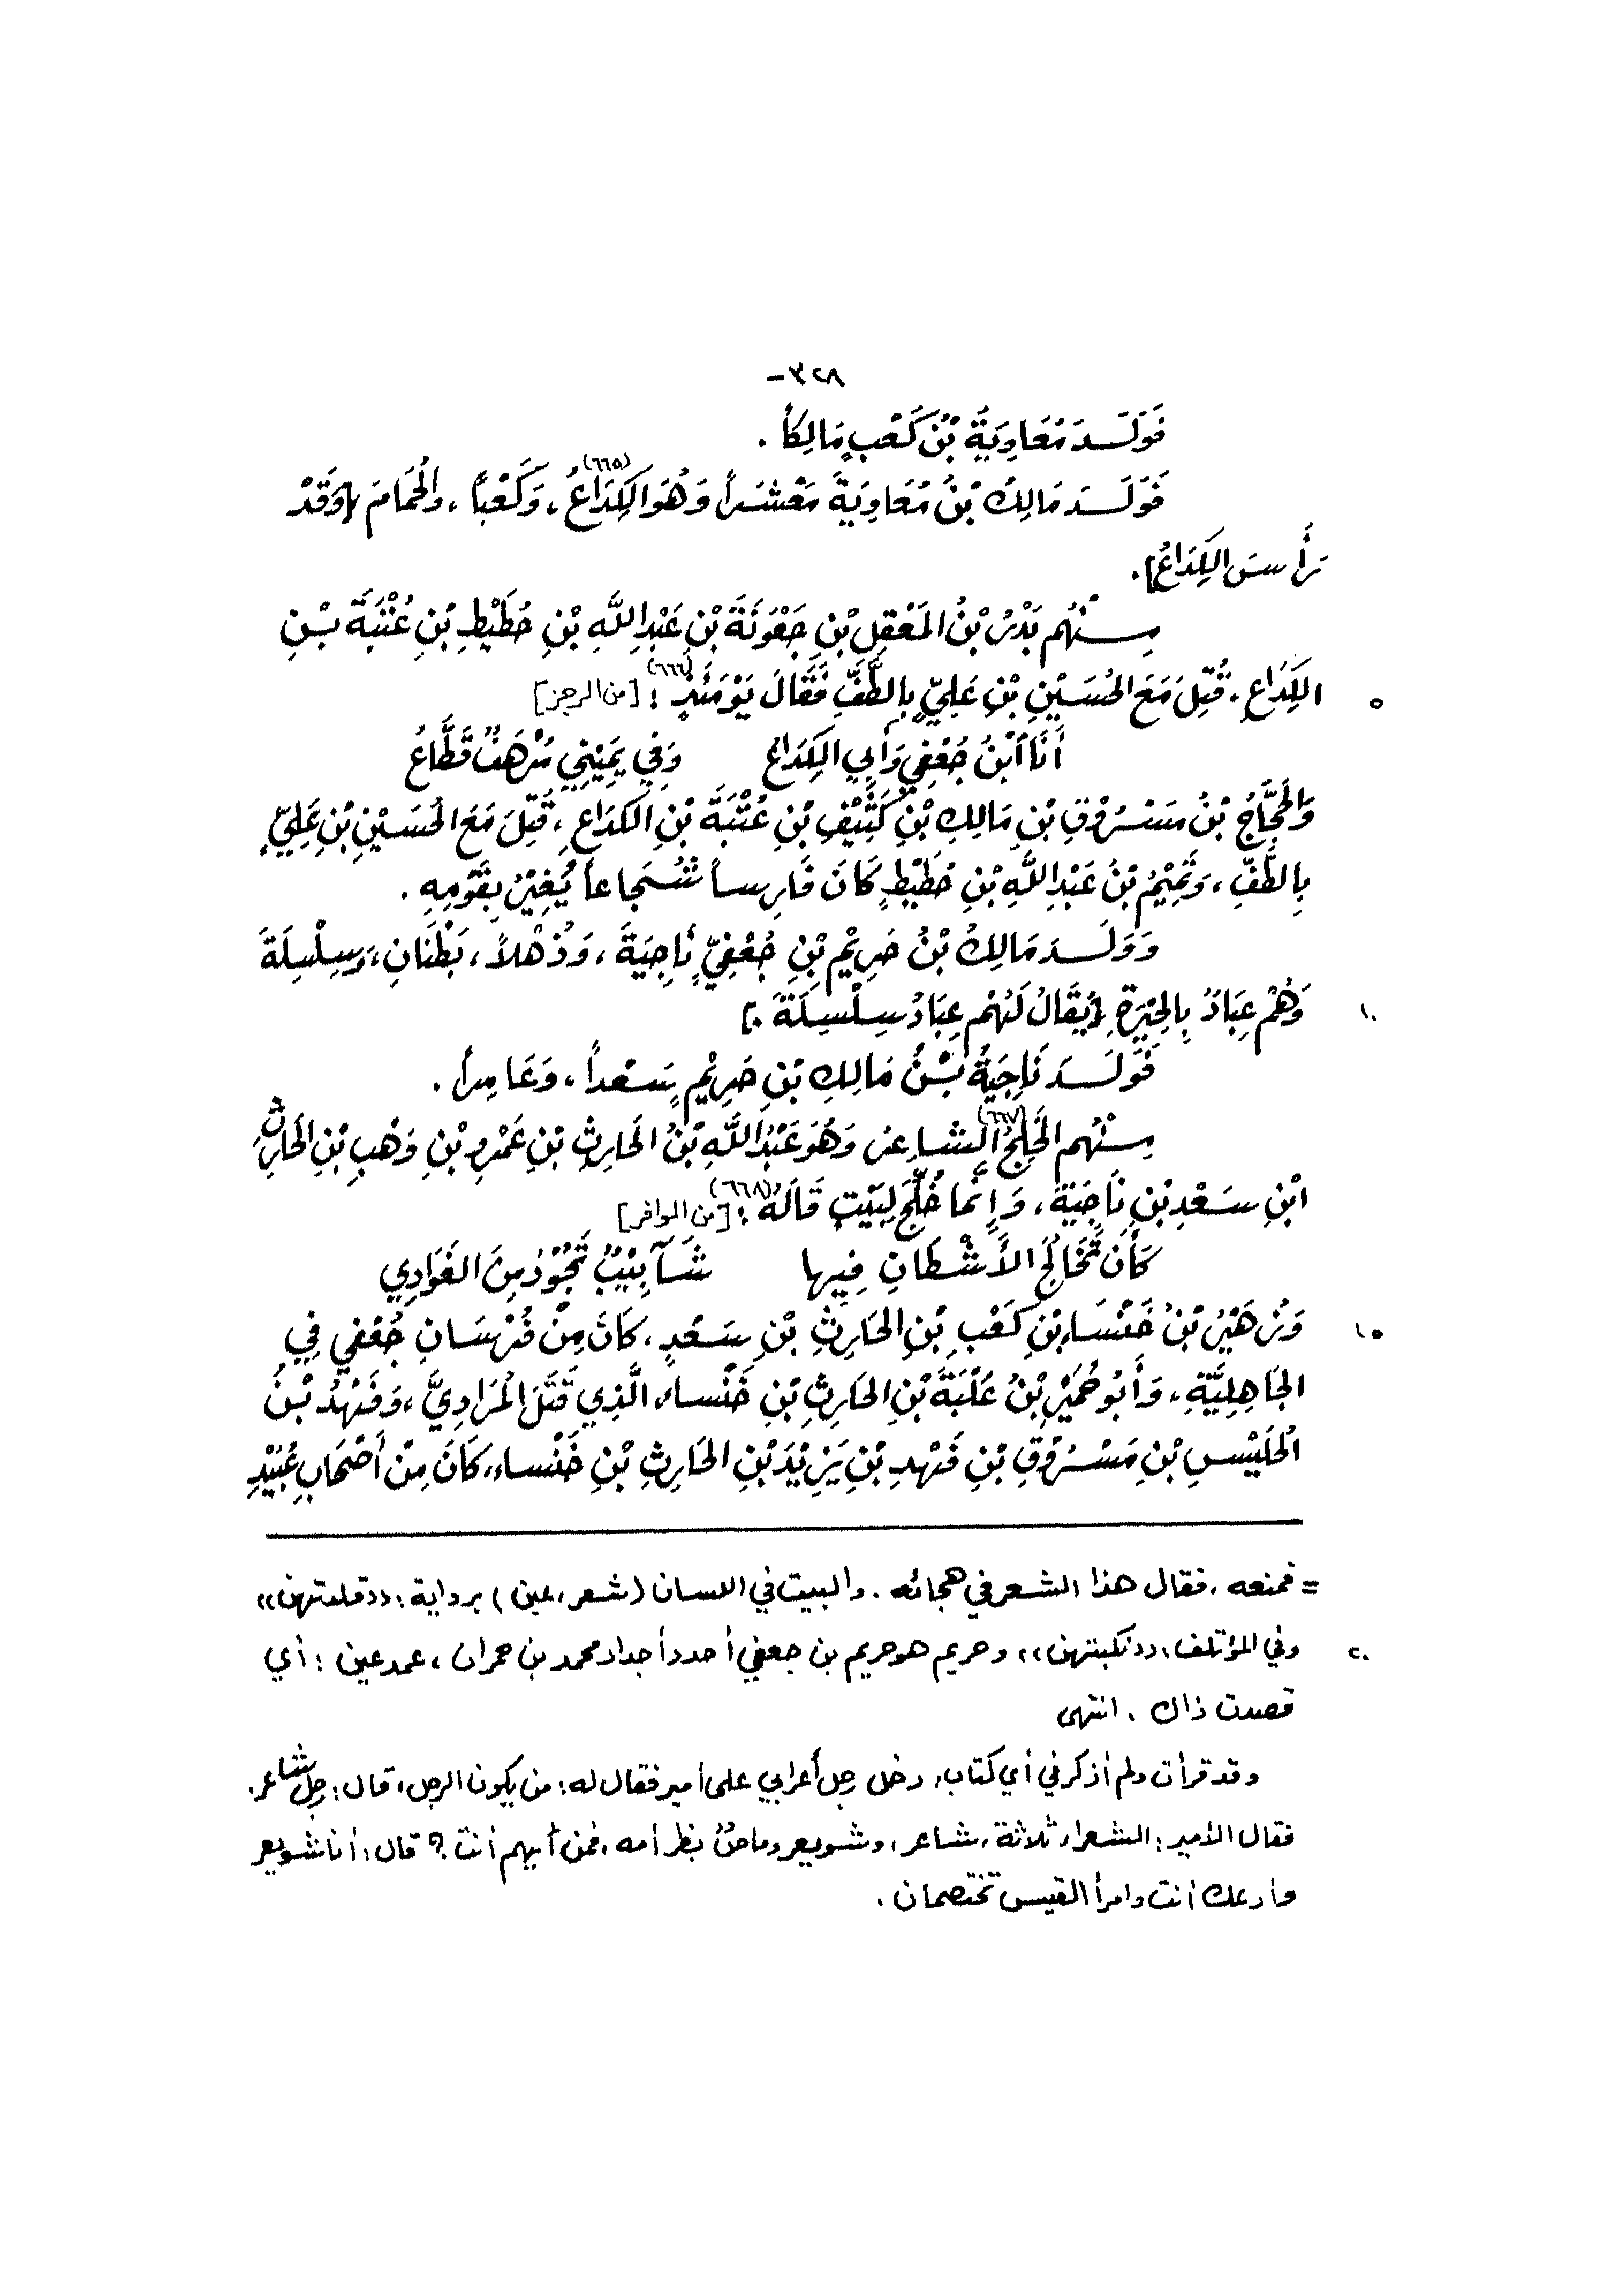 ٣٢٨-
فَوَلَـدَ مُعَاوِيَةُ بْنُ كَعْبٍ مَالِكاً .
فَوَلَـدَ مَالِكُ بْنُ مُعَاوِيَةَ مَعْشَراً وَهُوَ الكِدَاعُ(٦٦٥)، وَكَعْباً ، والْحَمَامَ [وَقَدْ
رَأَسَ الكِدَاعُ] .
مِـنْهُم بَدْرُ بْنُ المَعْقِلِ بْنِ جَعْوَنَةَ بْنِ عَبْدِ اللَّهِ بْنِ حُطَيْطِ بْنِ عُتْبَةَ بْـنِ
٥ الكِدَاعِ ، قُتِلَ مَعَ الحُسَيْنِ بْنِ عَلِيٍّ بِالطَّفِّ فَقَالَ يَوْمَئِذٍ(٦٦٦) : [من الرجز]
أَنَا ابْنُ جُعْفِي وَأَبِي الكِدَاعُ وَفِي يَمِيْنِي مُرْهَفٌ قَطَّاعُ
وَالْحَجَّاجُ بْنُ مَسْرُوْقِ بْنِ مَالِكِ بْنِ كَثِيْفِ بْنِ عُتْبَةَ بْنِ الكدَاعِ ، قُتِلَ مَعَ الحُسَيْنِ بْنِ عَلِيٍّ
بِالطَّفِّ ، وَتَمِيْمُ بْنُ عَبْدِ اللَّهِ بْنِ حُطَيْطٍ كَانَ فَارِساً شُجَاعاً يُغِيْرُ بِقَوْمِهِ .
وَوَلَـدَ مَالِكُ بْنُ حَرِيْمِ بْنِ جُعْفِيٍّ نَاجِيَةَ ، وَذُهْلاً ، بَطْنَانِ ، وَسِلْسِلَةَ
١٠ وَهُمْ عِبَادٌ بِالحِيْرَةِ [يُقَالُ لَهُمْ عِبَادُ سِلْسِلَةَ .]
فَوَلَـدَ نَاجِيَةُ بْـنُ مَالِكِ بْنِ حَرِيْمٍ سَعْداً ، وَعَامِراً .
مِـنْهُم الخَلِجُ(٦٦٧) الشاعِرُ وَهُوَ عَبْدُ اللَّهِ بْنُ الحَارِثِ بْنِ عَمْرِو بْنِ وَهْبِ بْنِ الحَارِثِ
ابْنِ سَعْدِ بْنِ نَاجِيَةَ ، وَإِنَّما خُلِّجَ لِبَيْتٍ قَالَهُ(٦٦٨) : [من الوافر]
كَأَنَّ تَخَالُجَ الأَشْطَانِ فِيها شَآبِيْبٌ تَجُوْدُ مِنَ الغَوَادِي
١٥ وَزُهَيْرُ بْنُ خَنْسَاءِ بْنِ كَعْبِ بْنِ الحَارِثِ بْنِ سَعْدٍ ، كَانَ مِنْ فُرْسَانِ جُعْفِي فِي
الجَاهِلِيَّةِ ، وَأَبُو حُمَيْرِ بْنُ عَلْبَةَ بْنِ الحَارِثِ بْنِ خَنْساء ، الَّذِي قَتَلَ المُرَادِيَّ ، وَفَهْدُ بْنُ
الْحَلَيْسِ بْنِ مَسْرُوْقِ بْنِ فَهْدِ بْنِ يَزِيْدَ بْنِ الحَارِثِ بْنِ خَنْساء ، كَانَ مِنْ أَصْحَابِ عُبَيْدِ
= فمنعه ، فقال هذا الشعر في هجائه . والبيت في اللسان (شعر ، عين) برواية : ((قلدتهن))
٢٠ وفي المؤتلف : ((نكبتهن)) ، وحريم هو حريم بن جعفي أحد أجداد محمد بن حمران ، عمد عين : أي
قصدت ذاك . انتهى
وقد قرأت ولم أذكر في أي كتاب : دخل رجل أعرابي على أمير فقال له : من يكون الرجل ، قال : رجل شاعر .
فقال الأمير : الشعراء ثلاثة ، شاعر ، وشويعر وماصّ بظر أمه ، فمن أيهم أنت ؟ قال : أنا شويعر
وأدعك أنت وامرأ القيس تختصمان .